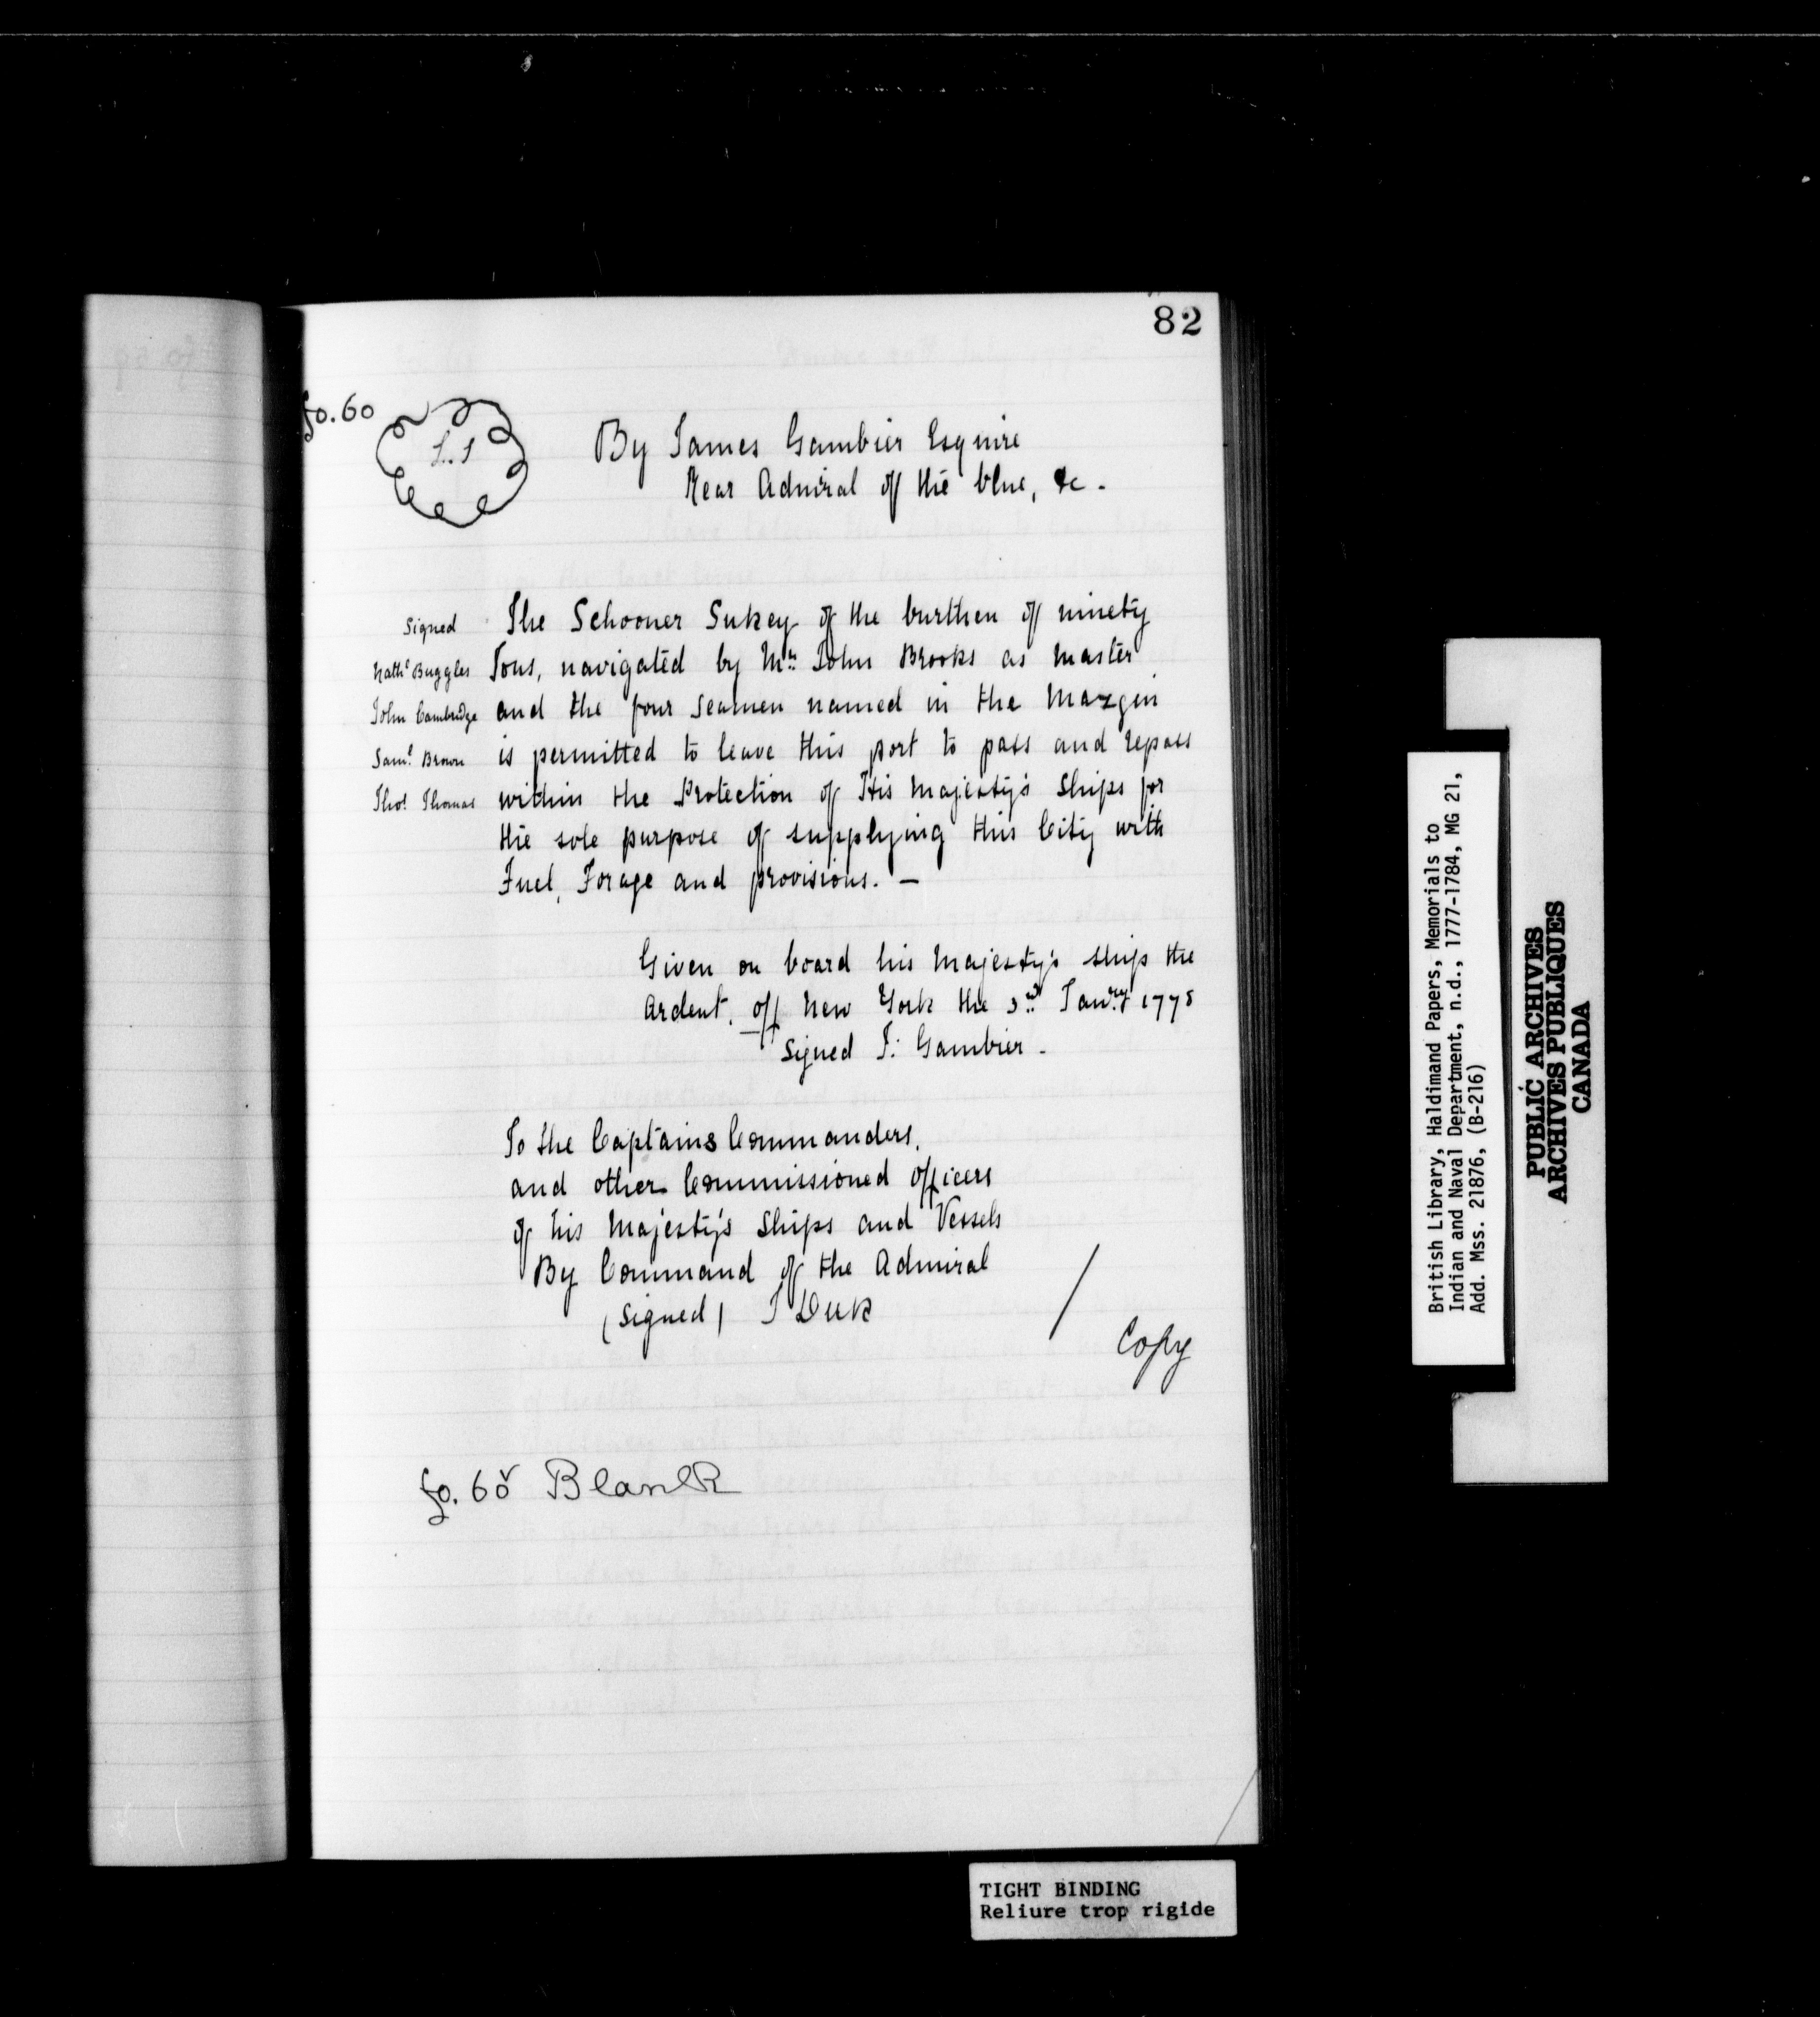 82
fo. 60
L.S
By James Gambier Esquire
Rear Admiral of the blue, &c.
Signed
Nathl Buggles
John Cambridge
Saml Brown
Thos Thomas
The Schooner Sukey of the burthen of ninety
Tons, navigated by Mr. John Brooks as Master
and the four Seamen named in the Margin
is permitted to leave this port to pass and repass
within the Protection of His Majesty's Ships for
the sole purpose of supplying this City with
Fuel, Forage and provisions. —
Given on board his Majesty's ship the
Ardent, off New York the 3rd Janry 1778
Signed J: Gambier.
To the Captains Commanders,
and other Commissioned officers
of his Majesty's Ships and Vessels
By Command of the Admiral
(signed) J
Copy
fo. 60v Blank
British Library, Haldimand Papers, Memorials to
Indian and Naval Department, n.d., 1777-1784, MG 21,
Add. Mss. 21876, (B-216)
PUBLIC ARCHIVES
ARCHIVES PUBLIQUES
CANADA
TIGHT BINDING
Reliure trop rigide